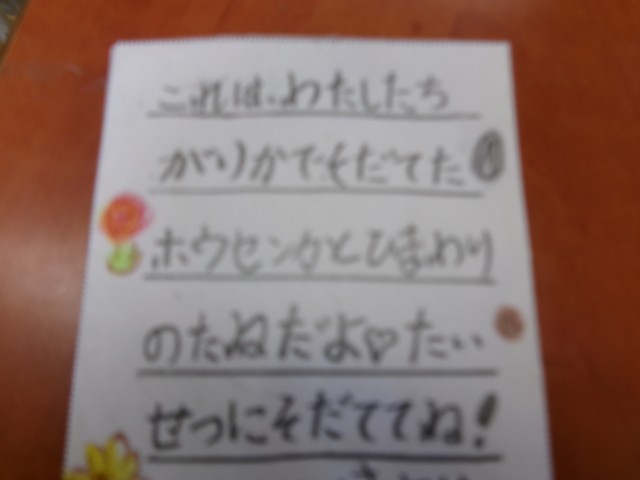 これは、わたしたち
がりかでそだてた
ホウセンカとひまわり
のたねだよ♡たい
せつにそだててね!